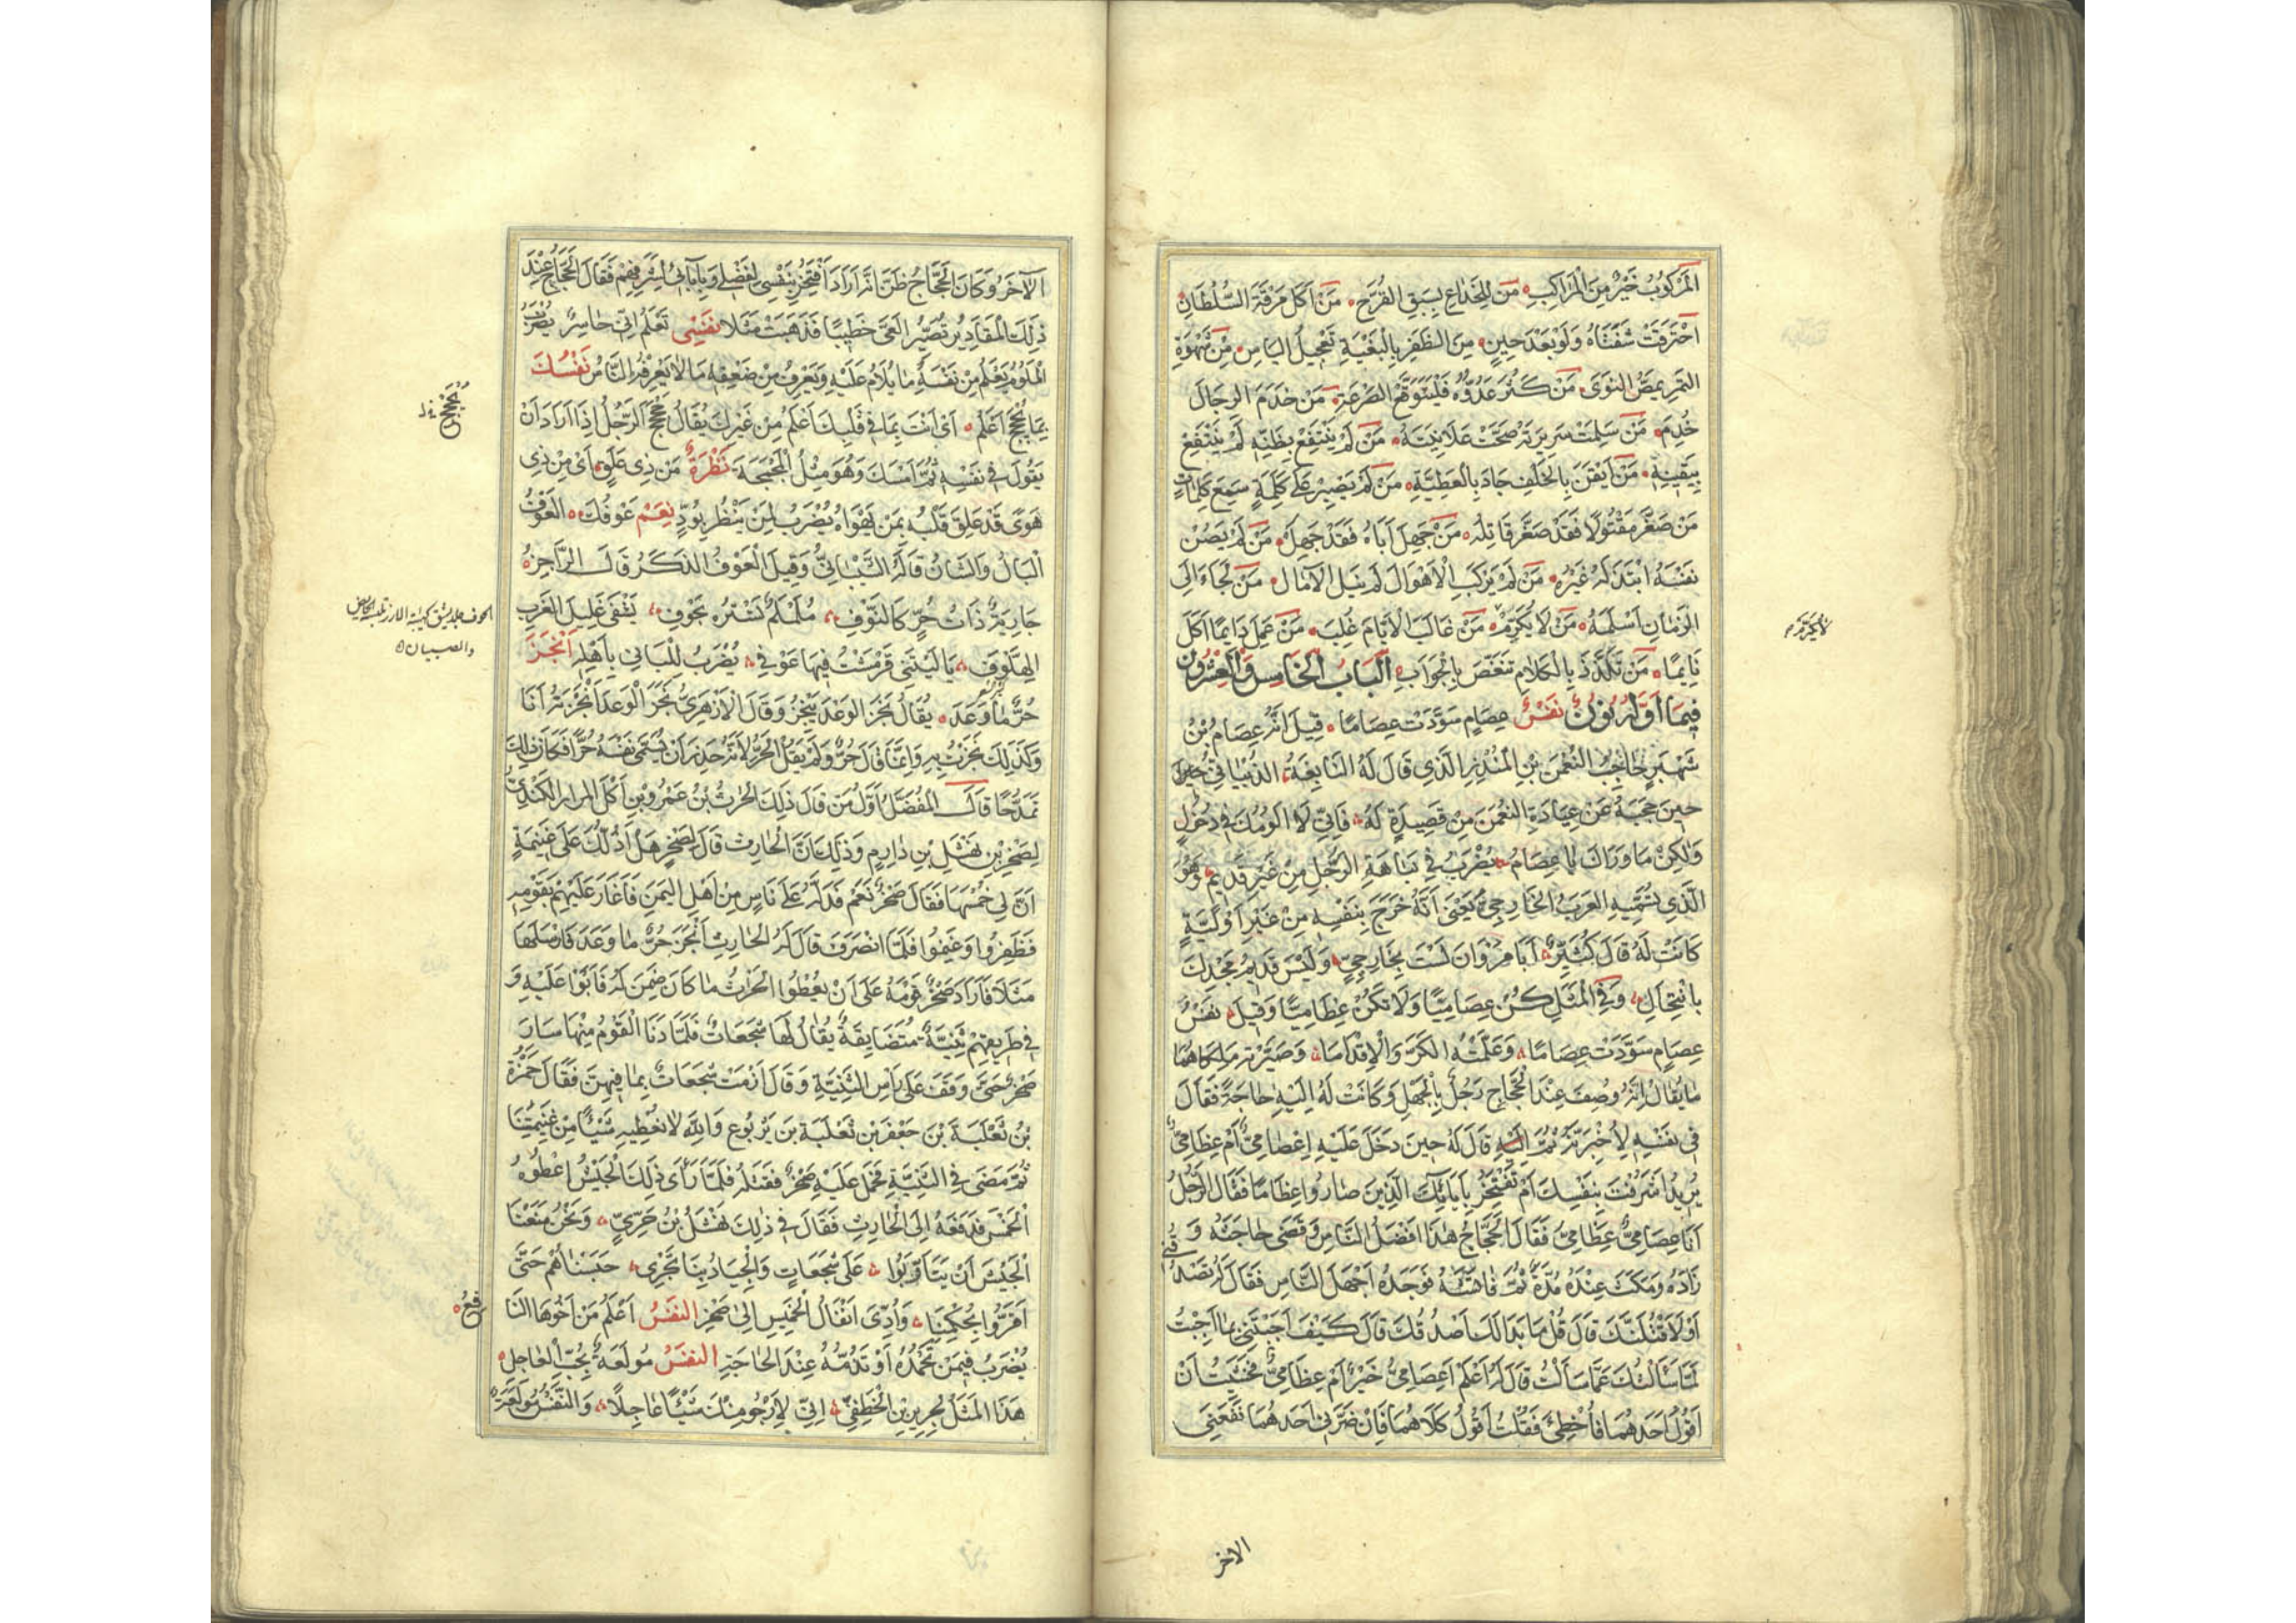 المَرْكُوبُ خَيْرٌ مِنَ الْمَرَاكِبِ مَن لِلْجَذَاعِ بِسَبَقِ القُرَّحِ مَنْ أَكَلَ مَرَقَةَ السُّلْطَانِ
احْتَرَقَتْ شَفَتَاهُ وَلَوْ بَعْدَ حِينٍ مِنَ الظَّفَرِ بِالْبُغْيَةِ تَعْجِيلُ اليَاسِ مِنْ شَهْوَةِ
التَمْرِ يمصُّ النَوَى مَنْ كَثُرَ عَدُوُّهُ فَلْيَتَوَقَّعِ الصَّرْعَةَ مَنْ خَدَمَ الرِجَالَ
خُدِمَ مَنْ سَلِمَتْ سَرِيرَتُهُ صَحَّتْ عَلَانِيَتُهُ مَنْ لَمْ يَنْتَفِعْ بِظَنِّهِ لَمْ يَنْتَفِعْ
بِيَقِينِهِ مَنْ أَيْقَنَ بِالخَلَفِ جَادَ بِالْعَطِيَّةِ مَنْ لَمْ يَصْبِرْ عَلَى كَلِمَةٍ سَمِعَ كَلِمَاتٍ
مَنْ صَغَّرَ مَقْتُولًا فَقَدْ صَغَّرَ قَاتِلَهُ مَنْ جَهِلَ أَبَاهُ فَقَدْ جَهِلَ مَنْ لَمْ يَصُنْ
نَفْسَهُ ابْتَذَلَهُ غَيْرُهُ مَنْ لَمْ يَرْكَبِ الْأَهْوَالَ لَمْ يَنَلِ الآمَالَ مَنْ لَجَاءَ إِلَى
الزَمَانِ أَسْلَمَهُ مَنْ لَا يُكْرِمُ مَنْ غَالَبَ الْأَيَّامَ غُلِبَ مَنْ عَمِلَ دَائِمًا أَكَلَ
نَائِمًا مَنْ تَلَذَّذَ بِالْكَلَامِ تَنَغَّصَ بِالْجَوَابِ البَابُ الْخَامِسُ وَالْعِشْرُونَ
فِيمَا أَوَّلُهُ نُونٌ نَفْسُ عِصَامٍ سَوَّدَتْ عِصَامًا قِيلَ إِنَّهُ عِصَامُ بْنُ
شَهْبَرٍ حَاجِبُ النُعْمَنِ بْنِ الْمُنْذِرِ الَّذِي قَالَ لَهُ النَابِغَةُ الذُبْيَانِيُّ
حِينَ حَجَبَهُ عَنْ عِيَادَةِ النُعْمَنِ مِنْ قَصِيدَةٍ لَهُ فَإِنِّي لَا أَلُومُكَ فِي دُخُولٍ
وَلَكِنْ مَا وَرَاكَ يَا عِصَامُ يُضْرَبُ فِي نَبَاهَةِ الرَّجُلِ مِنْ غَيْرِ قَدِيمٍ وَهُوَ
الَّذِي تُسَمِّيهِ العَرَبُ الخَارِجِيَّ يَعْنِى أَنَّهُ خَرَجَ بِنَفْسِهِ مِنْ غَيْرِ أَوَّلِيَّةٍ
كَانَتْ لَهُ قَالَ كُثَيِّرٌ أَبَا مَرْوَانَ لَسْتَ بِخَارِجِيٍّ وَلَيْسَ قَدِيمُ مَجْدِكَ
بِانْتِحَالِ وَفِي الْمَثَلِ كُنْ عِصَامِيًّا وَلَا تَكُنْ عِظَامِيًّا وَقِيلَ نَفْسُ
عِصَامٍ سَوَّدَتْ عِصَامًا وَعَلَّمَتْهُ الكَرَّ وَالْإِقْدَامَا وَصَيَّرَتْهُ مَلِكًا هُمَامًا
مَا يُقَالُ إِنَّهُ وُصِفَ عِنْدَ الْحَجَّاجِ رَجُلٌ بِالْجَهْلِ وَكَانَتْ لَهُ إِلَيْهِ حَاجَةٌ فَقَالَ
فِي نَفْسِهِ لَأَخْبُرَنَّهُ ثُمَّ إِلَيْهِ قَالَ لَهُ حِينَ دَخَلَ عَلَيْهِ أَعِصَامِيٌّ أَمْ عِظَامِيٌّ
يُرِيدُ أَشَرُفْتَ بِنَفْسِكَ أَمْ تَفْتَخِرُ بِآبَائِكَ الَّذِينَ صَارُوا عِظَامًا فَقَالَ الرَّجُلُ
أَنَا عِصَامِيٌّ عِظَامِيٌّ فَقَالَ الْحَجَّاجُ هَذَا أَفْضَلُ النَّاسِ وَقَضَى حَاجَتَهُ وَ
زَادَهُ وَمَكَثَ عِنْدَهُ مُدَّةً ثُمَّ فَوَجَدَهُ أَجْهَلَ النَّاسِ فَقَالَ لَهُ تَصْدُقُنِي
أَوْ لَأَقْتُلَنَّكَ قَالَ قُلْ مَا بَدَا لَكَ أَصْدُقُكَ قَالَ كَيْفَ أَجَبْتَنِي بِمَا أَجَبْتَ
لَمَّا سَأَلْتُكَ عَمَّا سَأَلْتُ قَالَ لَمْ أَعْلَمْ أَعِصَامِيٌّ خَيْرٌ أَمْ عِظَامِيٌّ فَخَشِيتُ أَنْ
أَقُولَ أَحَدَهُمَا فَأُخْطِئَ فَقُلْتُ أَقُولُ كِلَاهُمَا فَإِنْ ضَرَّنِي أَحَدُهُمَا نَفَعَنِي
الاخر
الآخَرُ وَكَانَ الْحَجَّاجُ ظَنَّ أَنَّهُ أَرَادَ أَفْتَخِرُ بِنَفْسِي لِفَضْلِي وَبِآبَائِي لِشَرَفِهِمْ فَقَالَ الْحَجَّاجُ عِنْدَ
ذَلِكَ الْمَقَادِيرُ تُصَيِّرُ العَيَّ خَطِيبًا فَذَهَبَتْ مَثَلًا نَفْسِي تَعْلَمُ أَنِّي خَاسِرٌ يُضْرَبُ
لِلْمَلُومِ يَعْلَمُ مِنْ نَفْسِهِ مَا يُلَامُ عَلَيْهِ وَيَعْرِفُ مِنْ ضَعْفِهِ مَا لَا يَعْرِفُهُ النَّاسُ نَفْسُكَ
بِمَا تُحَجْحِجُ أَعْلَمُ أَيْ أَنْتَ بِمَا فِي قَلْبِكَ أَعْلَمُ مِنْ غَيْرِكَ يُقَالُ حَجْحَجَ الرَّجُلُ إِذَا أَرَادَ أَنْ
يَقُولَ مَا فِي نَفْسِهِ ثُمَّ أَمْسَكَ وَهُوَ مِثْلُ الْمَجْمَجَةِ نَظْرَةٌ مِنْ ذِي عَلَقٍ أَيْ مِنْ ذِي
هَوًى قَدْ عَلِقَ قَلْبُهُ بِمَنْ يَهْوَاهُ يُضْرَبُ لِمَنْ يَنْظُرُ بِوُدٍّ نِعْمَ عَوْفُكَ العَوْفُ
الْبَالُ وَالشَانُ قَالَهُ الشَّيْبَانِيُّ وَقِيلَ الْعَوْفُ الذَكَرُ قَالَ الرَّاجِزُ
جَارِيَةٌ ذَاتُ حِرٍّ كَالنَّوْفِ مُلَمْلَمٍ تَسْتُرُهُ بِحَوْفِ يَشْفِي غَلِيلَ العَزَبِ
الهِلَّوْفِ يَا لَيْتَنِي قَرْمَشْتُ فِيهَا عَوْفِي يُضْرَبُ لِلْبَانِي بِأَهْلِهِ أَنْجَزَ
حُرٌّ مَا وَعَدَ يُقَالُ نَجَزَ الوَعْدُ يَنْجُزُ وَقَالَ الْأَزْهَرِيُّ نَجَزَ الْوَعْدُ أَنْجَزْتُهُ أَنَا
وَكَذَلِكَ نَجَزْتُ بِهِ وَإِنَّمَا قَالَ حُرٌّ وَلَمْ يَقُلِ الْحُرُّ لِأَنَّهُ حَذِرَ أَنْ يُسَمِّيَ نَفْسَهُ حُرًّا فَكَانَ ذَلِكَ
تَمَدُّحًا قَالَ الْمُفَضَّلُ أَوَّلُ مَنْ قَالَ ذَلِكَ الْحَرِثُ بْنُ عَمْرِو بْنِ آكِلِ الْمُرَارِ الْكِنْدِيُّ
لِصَخْرِ بْنِ نَهْشَلِ بْنِ دَارِمٍ وَذَلِكَ أَنَّ الْحَارِثَ قَالَ لِصَخْرٍ هَلْ أَدُلُّكَ عَلَى غَنِيمَةٍ
أَنَّ لِي خُمْسَهَا فَقَالَ صَخْرٌ نَعَمْ فَدَلَّهُ عَلَى نَاسٍ مِنْ أَهْلِ الْيَمَنِ فَأَغَارَ عَلَيْهِمْ بِقَوْمِهِ
فَظَفِرُوا وَغَنِمُوا فَلَمَّا انْصَرَفَ قَالَ لَهُ الْحَارِثُ أَنْجَزَ حُرٌّ مَا وَعَدَ فَأَرْسَلَهَا
مَثَلًا فَأَرَادَ صَخْرٌ قَوْمَهُ عَلَى أَنْ يُعْطُوا الْحَرِثَ مَا كَانَ ضَمِنَ لَهُ فَأَبَوْا عَلَيْهِ وَ
فِي طَرِيقِهِمْ ثَنِيَّةٌ مُتَضَايِقَةٌ يُقَالُ لَهَا شَجَعَاتٌ فَلَمَّا دَنَا الْقَوْمُ مِنْهَا سَارَ
صَخْرٌ حَتَّى وَقَفَ عَلَى رَأْسِ الثَّنِيَّةِ وَقَالَ أَزَمَتْ شَجَعَاتٌ بِمَا فِيهِنَّ فَقَالَ حَمْزَةُ
بْنُ ثَعْلَبَةَ بْنِ جَعْفَرِ بْنِ ثَعْلَبَةَ بْنِ يَرْبُوعٍ وَاللَّهِ لَا نُعْطِيهِ شَيْئًا مِنْ غَنِيمَتِنَا
ثُمَّ مَضَى فِي الثَّنِيَّةِ فَحَمَلَ عَلَيْهِ صَخْرٌ فَقَتَلَهُ فَلَمَّا رَأَى ذَلِكَ الْجَيْشُ أَعْطَوْهُ
الْخُمْسَ فَدَفَعَهُ إِلَى الْحَارِثِ فَقَالَ فِي ذَلِكَ نَهْشَلُ بْنُ حَرِّيٍّ وَنَحْنُ مَنَعْنَا
الْجَيْشَ أَنْ يَتَأَوَّبُوا عَلَى شَجَعَاتٍ وَالْجِيَادُ بِنَا تَجْرِي حَبَسْنَاهُمْ حَتَّى
أَقَرُّوا بِحُكْمِنَا وَأُدِّيَ أَنْفَالُ الْخَمِيسِ إِلَى صَخْرِ النَفْسُ أَعْلَمُ مَنْ أَخُوهَا النَافِعُ
يُضْرَبُ فِيمَنْ تَحْمَدُهُ أَوْ تَذُمُّهُ عِنْدَ الْحَاجَةِ النفسُ مُولَعَةٌ بِحُبِّ الْعَاجِلِ
هَذَا الْمَثَلُ لِجَرِيرِ بْنِ الْخَطَفَى إِنِّي لَأَرْجُو مِنْكَ شَيْئًا عَاجِلًا وَالنَّفْسُ مُولَعَةٌ